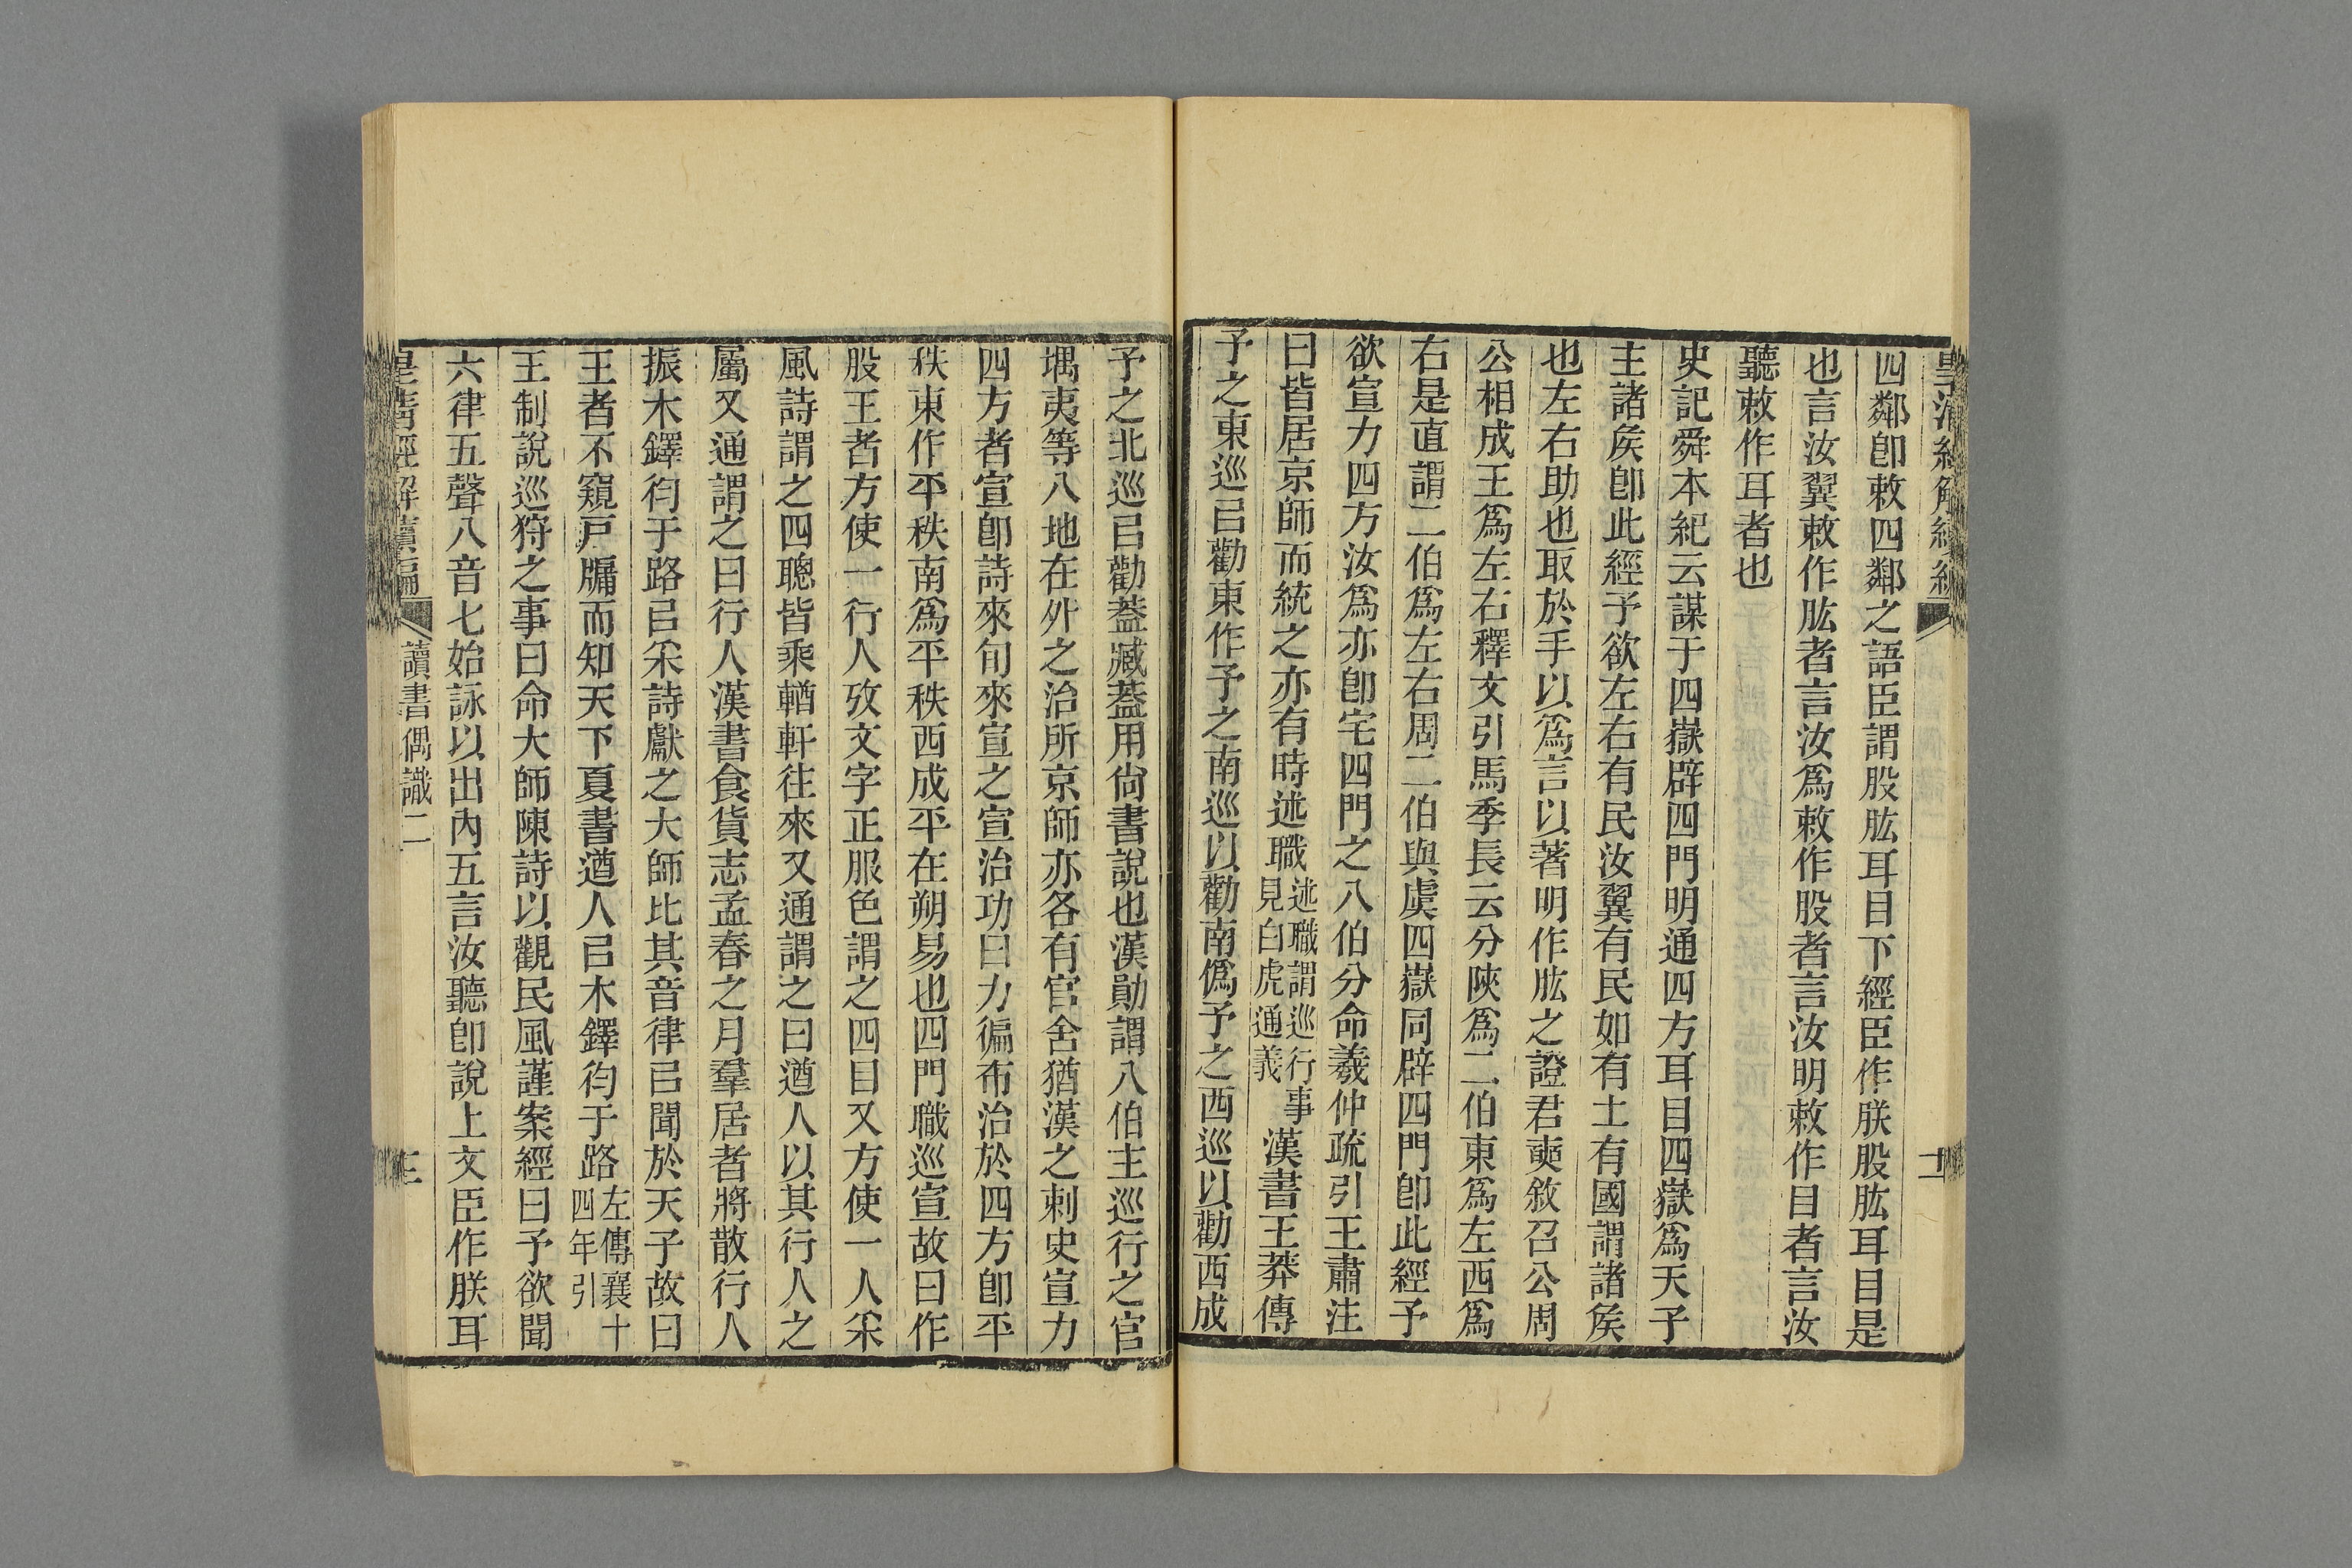 四鄰卽敕四鄰之語臣謂股肱耳目下經臣作朕股肱耳目是
也言汝翼敕作肱者言汝爲敕作股者言汝明敕作目者言汝
聽敕作耳者也
史記舜本紀云謀于四嶽辟四門明通四方耳目四嶽爲天子
主諸矦卽此經予欲左右有民汝翼有民如有土有國謂諸矦
也左右助也取於手以爲言以著明作肱之證君奭敘召公周
公相成王爲左右釋文引馬季長云分陝爲二伯東爲左西爲
右是直謂二伯爲左右周二伯與虞四嶽同辟四門卽此經予
欲宣力四方汝爲亦卽宅四門之八伯分命羲仲疏引王肅注
曰皆居京師而統之亦有時述職述職謂巡行事見白虎通義漢書王莽傳
予之東巡㠯勸東作予之南巡以勸南僞予之西巡以勸西成
予之北巡㠯勸蓋臧蓋用尙書說也漢勛謂八伯主巡行之官
堣夷等八地在外之治所京師亦各有官舍猶漢之刺史宣力
四方者宣卽詩來旬來宣之宣治功曰力徧布治於四方卽平
秩東作平秩南爲平秩西成平在朔易也四門職巡宣故曰作
股王者方使一行人攷文字正服色謂之四目又方使一人采
風詩謂之四聰皆乘輶軒往來又通謂之曰遒人以其行人之
屬又通謂之曰行人漢書食貨志孟春之月羣居者將散行人
振木鐸徇于路㠯采詩獻之大師比其音律㠯聞於天子故曰
王者不窺戸牖而知天下夏書遒人㠯木鐸徇于路左傳襄十四年引
王制說巡狩之事曰命大師陳詩以觀民風謹案經曰予欲聞
六律五聲八音七始詠以出內五言汝聽卽說上文臣作朕耳
皇清經解續編 讀書偶識二